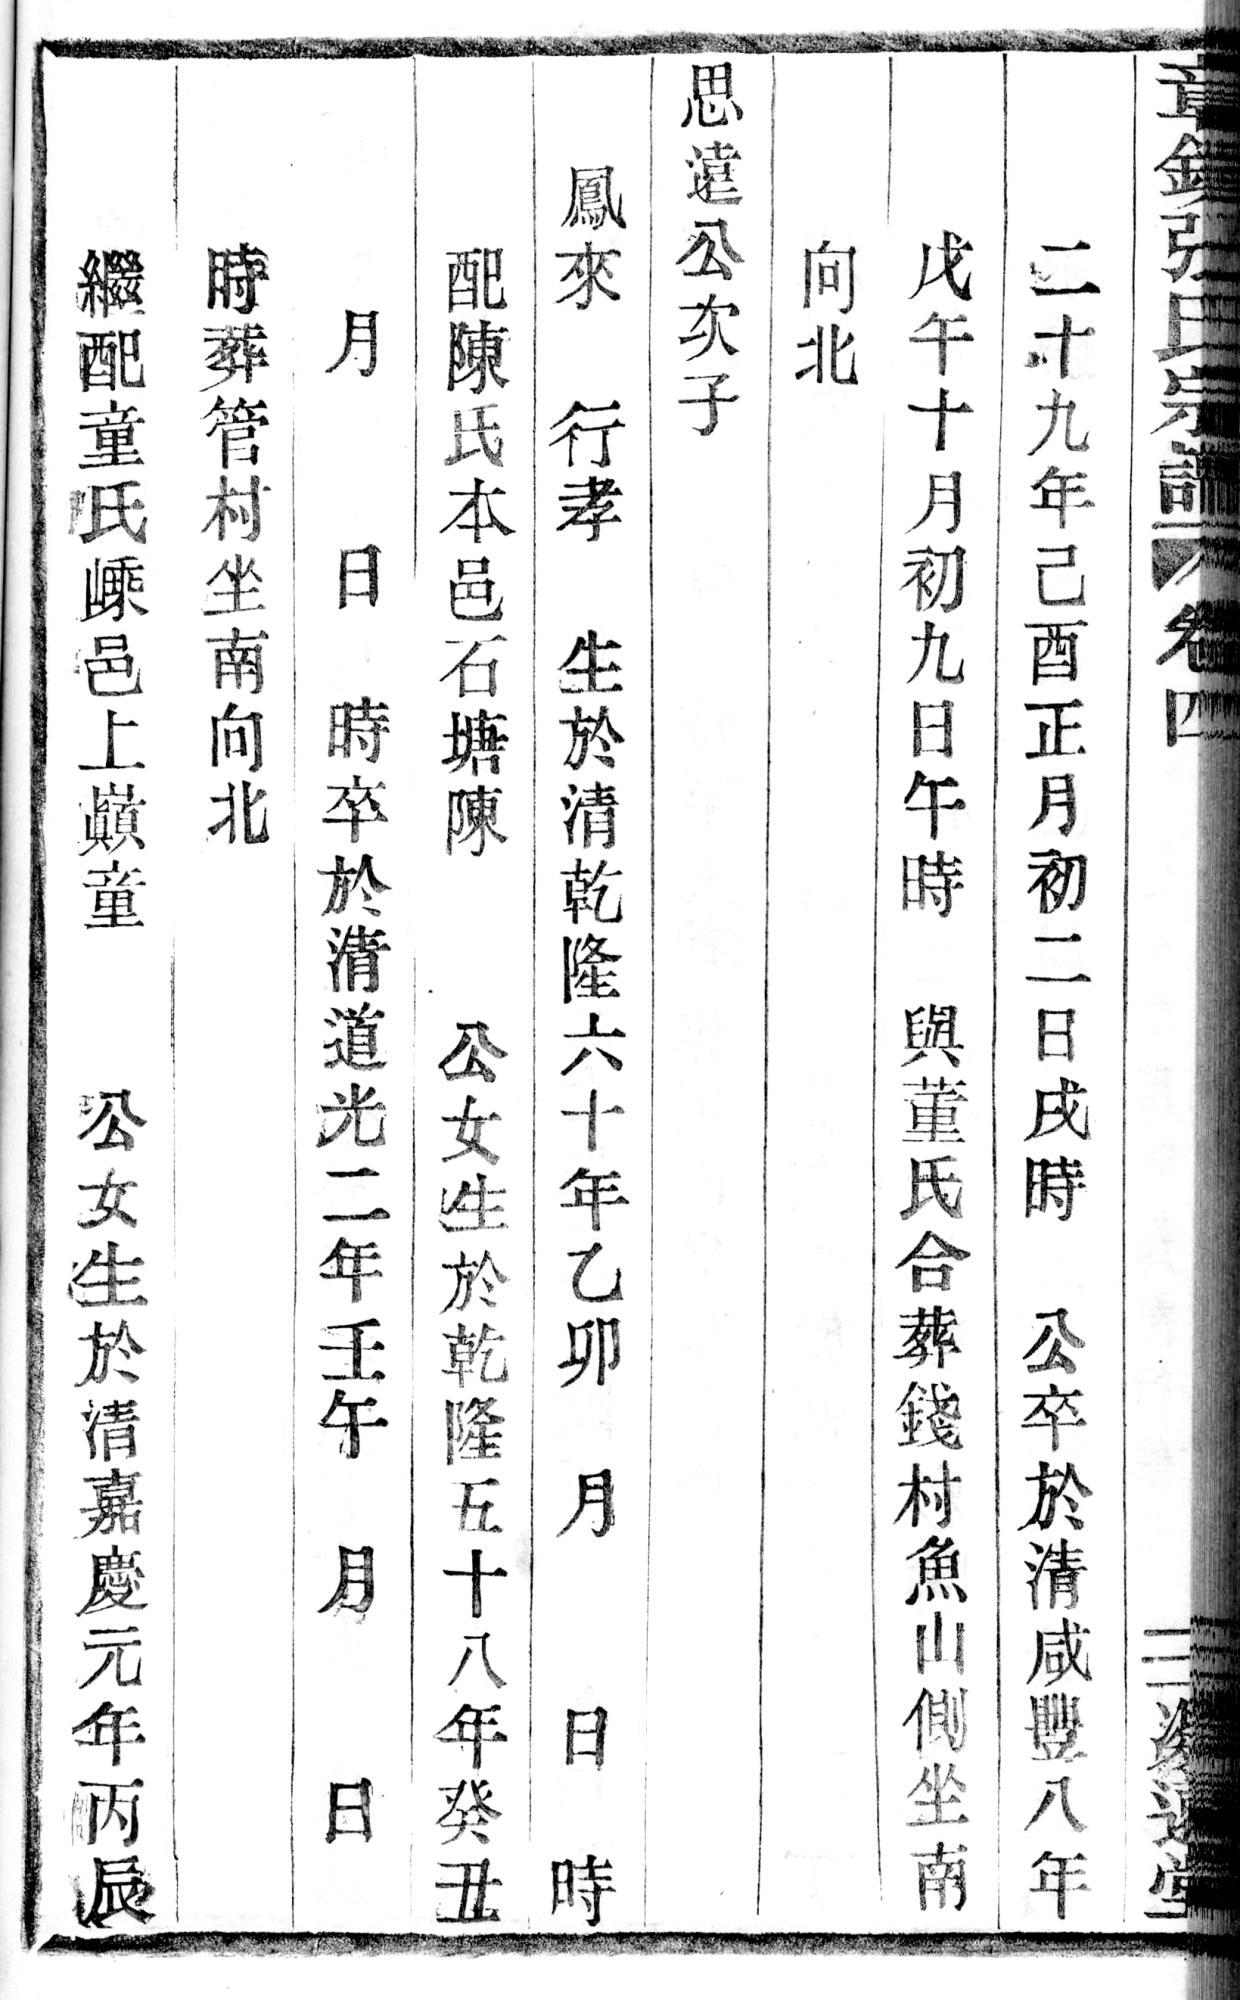 章鎮張氏宗譜 卷四 二 逸堂
二十九年己酉正月初二日戌時 公卒於清咸豐八年
戊午十月初九日午時 與董氏合葬錢村魚山側坐南
向北
思遠公次子
鳳來 行孝 生於清乾隆六十年乙卯 月 日 時
配陳氏本邑石塘陳 公女生於乾隆五十八年癸丑
月 日 時卒於清道光二年壬午 月 日
時葬管村坐南向北
繼配童氏嵊邑上巔童 公女生於清嘉慶元年丙辰